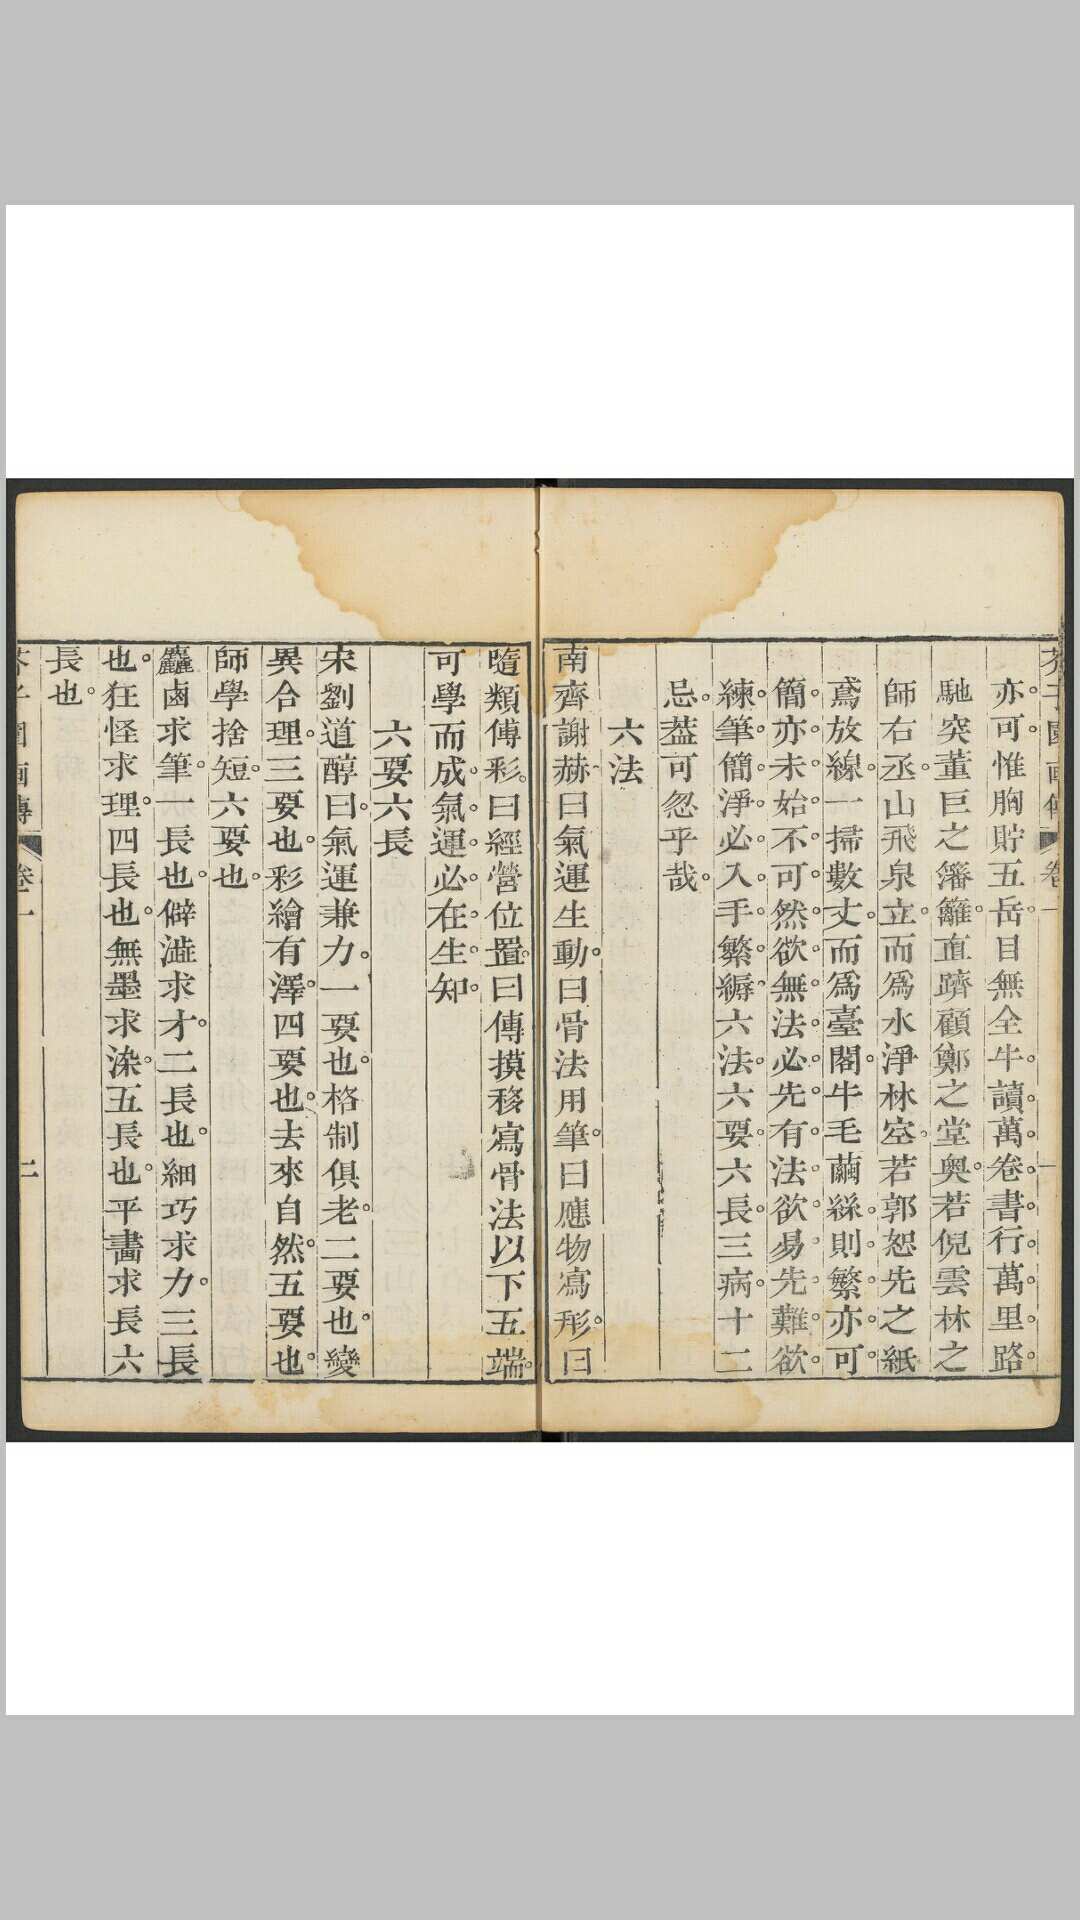 亦可惟胸貯五岳目無全牛讀萬卷書行萬里路
馳突董巨之籓籬直躋顧鄭之堂奧若倪雲林之
師右丞山飛泉立而爲水淨林空若郭恕先之紙
鳶放線一掃數丈而爲臺閣牛毛繭絲則繁亦可
簡亦未始不可然欲無法必先有法欲易先難欲
練筆簡淨必入手繁縟六法六要六長三病十二
忌葢可忽乎哉
六法
南齊謝赫曰氣運生動曰骨法用筆曰應物寫形曰
隨類傅彩曰經營位置曰傳摸移寫骨法以下五端
可學而成氣運必在生知
六要六長
宋劉道醇曰氣運兼力一要也格制俱老二要也變
異合理三要也彩繪有澤四要也去來自然五要也
師學捨短六要也
麤鹵求筆一長也僻澁求才二長也細巧求力三長
也狂怪求理四長也無墨求染五長也平畵求長六
長也
卷一
二